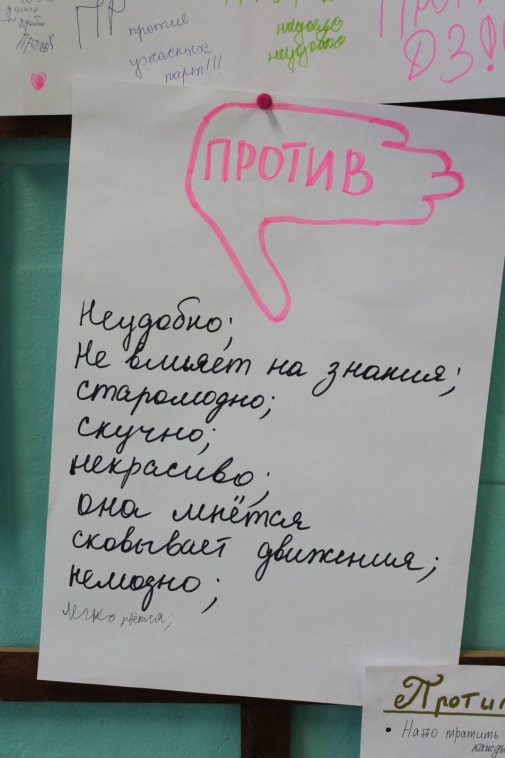 Против
ПР
против
ужасных
парт!!!
неудобно
ДЗ!
ПРОТИВ
Неудобно;
Не влияет на знания;
старомодно;
скучно;
некрасиво;
она мнётся
сковывает движения;
немодно;
легко рвётся;
Проти
• Надо тратить
кажды